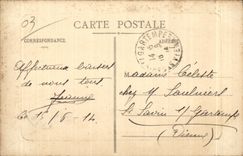 03
CARTE POSTALE
CORRESPONDANCE
Affectueux baisers
de nous tous
Jeanne
le 1-8-14
Madame Céleste
chez Mr Saulnier
St Savin s/ Gartempe
(Vienne)